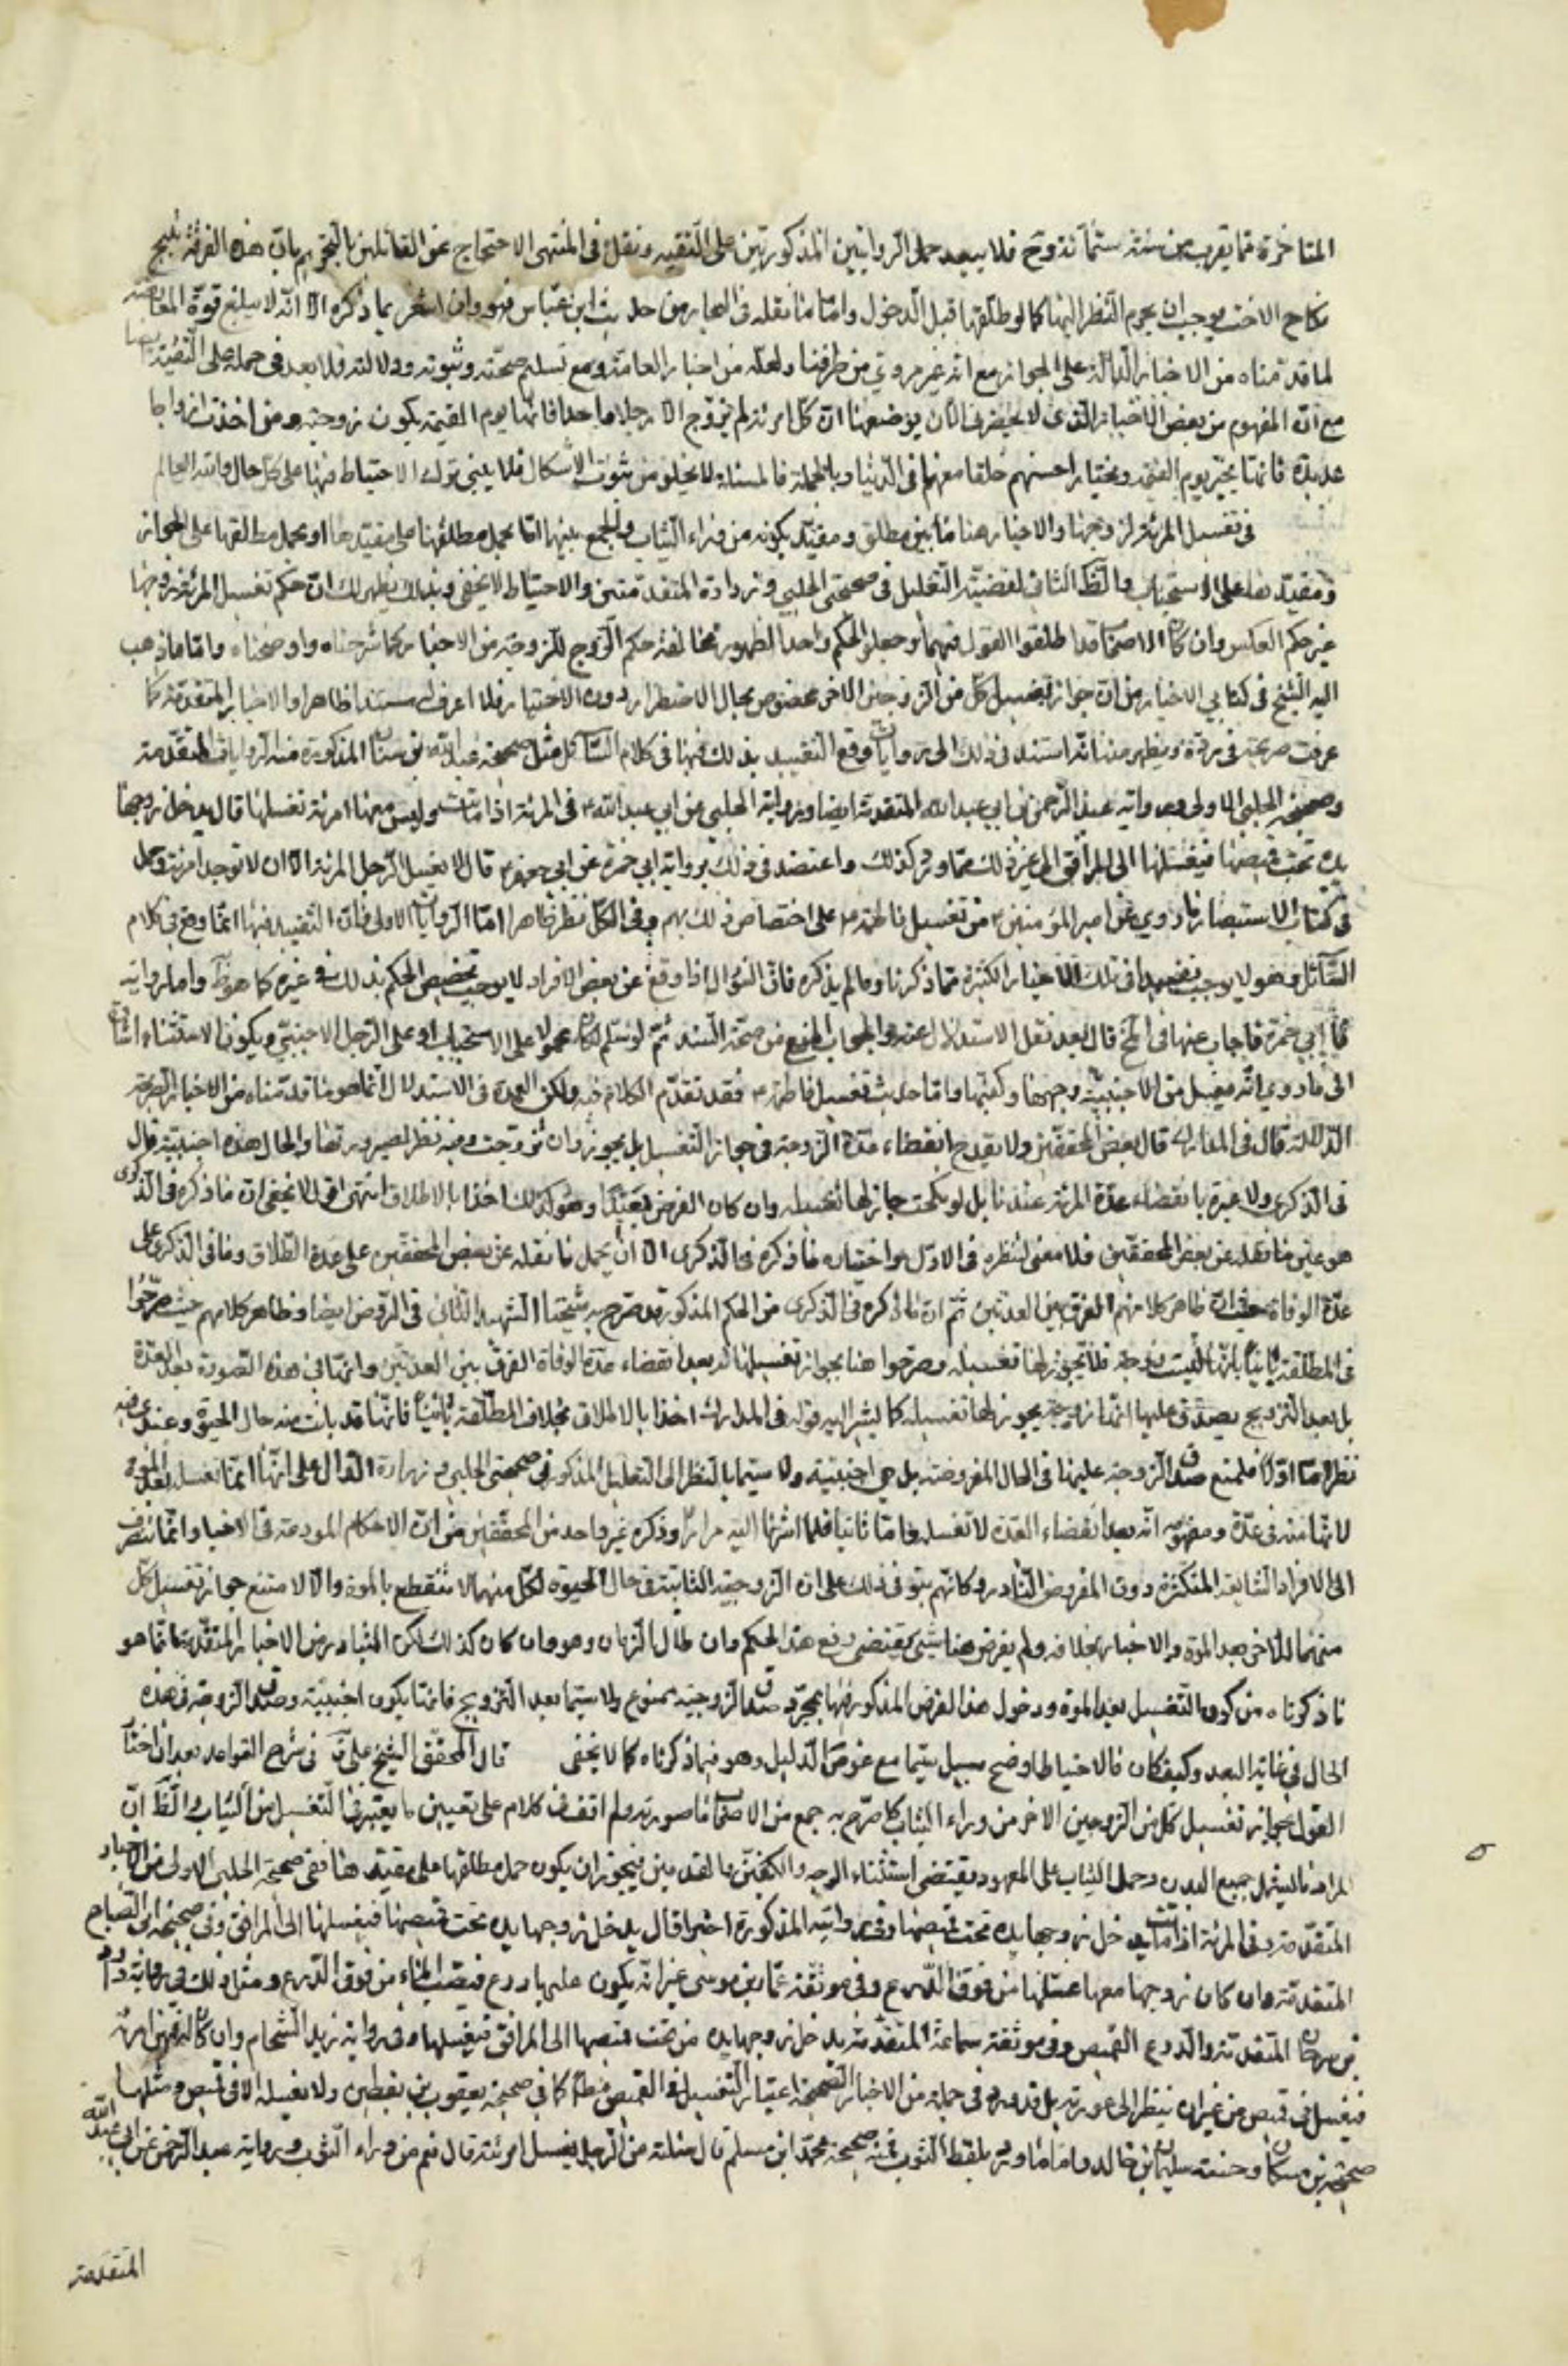 المتاخرة مما يقرب من سنة ستمائة وح فلا يبعد حمل الروايتين المذكورتين على التقيه ونقل فى المنتهى الاحتجاج عن القائلين بالتحريم بان هذه الفرقة تبيح
نكاح الاخت فيوجب ان يحرم النظر اليها كما لو طلقها قبل الدخول واما ما نقله فى البحار من حديث ابن عباس فهو وان اشعر بما ذكره الا انه لا يبلغ قوة المعارضة
لما قدمناه من الاخبار الدالة على الجواز مع انه غير مروي من طرقنا ولعله من اخبار العامة ومع تسليم صحته وثبوته ودلالته فلا بعد فى حمله على التقية ايضا
مع ان المفهوم من بعض الاخبار الذى لا يحضرنى الان موضعها ان كل امرئة لم تزوج الا رجلا واحدا فانها يوم القيمة يكون زوجته ومن اخذت ازواجا
عديدة فانها تخير يوم القيمة وتختار احسنهم خلقا معها فى الدنيا وبالجملة فالمسئلة لا تخلو من شوب الاشكال فلا ينبغى ترك الاحتياط فيها على كل حال والله العالم
فى تغسيل المرئة لزوجها والاخبار هنا ما بين مطلق ومقيد بكونه من وراء الثياب والجمع بينها اما بحمل مطلقها على مقيدها او بحمل مطلقها على الجواز
ومقيدها على الاستحباب والظ الثانى لقضية التعليل فى صحيحتى الحلبي وزرارة المتقدمتين والاحتياط لا يخفى وبذلك يظهر لك ان حكم تغسيل المرئة زوجها
غير حكم العكس وان كان الاصحاب قد اطلقوا القول فيهما وجعلوا الحكم واحدا لظهور مخالفة حكم الزوج للزوجة من الاخبار كما شرحناه واوضحناه واما ما ذهب
اليه الشيخ فى كتابي الاخبار من ان جواز تغسيل كل من الزوجين الاخر مخصوص بحال الاضطرار دون الاختيار فلا اعرف له مستندا ظاهرا والاخبار المتقدمة كما
عرفت صريحة فى رده ويظهر منه انه استند فى ذلك الى روايات وقع التقييد بذلك فيها فى كلام السائل مثل صحيحة عبد الله بن سنان المذكورة منه الروايات المتقدمة
وصحيحة الحلبي الاولى ورواية عبد الرحمن بن ابي عبد الله المتقدمة ايضا ورواية الحلبي عن ابي عبد الله ع فى المرئة اذا ماتت وليس معها امرئة تغسلها قال يدخل زوجها
يده تحت قميصها فيغسلها الى المرافق الى غير ذلك مما ورد كذلك واعتضد فى ذلك برواية ابي حمزة عن ابي جعفر ع قال لا يغسل الرجل المرئة الا ان لا توجد امرئة وحمل
فى كتاب الاستبصار ما روي عن امير المؤمنين ع من تغسيل فاطمة ع على اختصاص ذلك بهم وفى الكل نظر ظاهر اما الروايات الاولى فلان التقييد فيها انما وقع فى كلام
السائل وهو لا يوجب تقييدا فى تلك الاخبار الكثيرة مما ذكرنا وما لم يذكره فان السؤال اذا وقع عن بعض الافراد لا يوجب تخصيص الحكم بذلك فى غيره كما هو ظ واما رواية
ابي حمزة فاجاب عنها فى الخ قال بعد نقل الاستدلال عنه والجواب المنع من صحة السند ثم لو سلم لكان محمولا على الاستحباب او على الرجل الاجنبي ويكون الاستثناء اشارة
الى ما روي انه يغسل من الاجنبية وجهها وكفيها واما حديث تغسيل فاطمة ع فقد تقدم الكلام فيه ولكن العمدة فى الاستدلال انما هو ما قدمناه من الاخبار الصريحة
الدلالة قال فى المدارك قال بعض المحققين ولا يقدح انقضاء عدة الزوجة فى جواز التغسيل بل يجوز وان تزوجت وفيه نظر لصيرورتها والحال هذه اجنبية قال
فى الذكرى ولا عبرة بانقضاء عدة المرئة عندنا بل لو نكحت جاز لها تغسيله وان كان الفرض بعيدا وهو كذلك اخذا بالاطلاق انتهى اقول لا يخفى ان ما ذكره فى الذكرى
هو عين ما نقله عن بعض المحققين فلا معنى لنظره فى الاول واختياره ما ذكره فى الذكرى الا ان يحمل ما نقله عن بعض المحققين على عدة الطلاق وما فى الذكرى على
عدة الوفاة حيث ان ظاهر كلامهم الفرق بين العدتين ثم ان ما ذكره فى الذكرى من الحكم المذكور قد صرح به شيخنا الشهيد الثانى فى الروض ايضا وظاهر كلامهم حيث صرحوا
فى المطلقة بائنا بانها ليست زوجة فلا يجوز لها تغسيله وصرحوا هنا بجواز تغسيلها له بعد انقضاء عدة الوفاة الفرق بين العدتين وانها فى هذه الصورة بعد العدة
بل بعد التزويج يصدق عليها انها زوجة يجوز لها تغسيله كما يشير اليه قوله فى المدارك اخذا بالاطلاق بخلاف المطلقة بائنا فانها قد بانت منه حال الحيوة وعندى فيه
نظر اما اولا فلمنع صدق الزوجة عليها فى الحال المفروضة بل هي اجنبية ولا سيما بالنظر الى التعليل المذكور فى صحيحتى الحلبي وزرارة الدال على انها انما تغسله بعد الموت
لانها منه فى عدة ومفهومه انه بعد انقضاء العدة لا تغسله واما ثانيا فلما اشرنا اليه مرارا وذكره غير واحد من المحققين من ان الاحكام المودعة فى الاخبار انما تنصرف
الى الافراد الشايعة المتكثرة دون الفروض النادرة وكانهم بنوا فى ذلك على ان الزوجية الثابتة فى حال الحيوة لكل منهما لا تنقطع بالموت والا لامتنع جواز تغسيل كل
منهما للاخر بعد الموت والاخبار بخلافه ولم يعرض هنا شيء يقتضى رفع هذا الحكم وان طال الزمان وهو وان كان كذلك لكن المتبادر من الاخبار المتقدمة انما هو
ما ذكرناه من كون التغسيل بعد الموت ودخول هذا الفرض المذكور فيها بمجرد صدق الزوجية ممنوع ولا سيما بعد التزويج فانها يكون اجنبية وصدق الزوجة فى هذه
الحال فى غاية البعد وكيف كان فالاحتياط اوضح سبيل سيما مع غموض الدليل وهو فيما ذكرناه كما لا يخفى قال المحقق الشيخ على ره فى شرح القواعد بعد ان اختار
القول بجواز تغسيل كل من الزوجين الاخر من وراء الثياب كما صرح به جمع من الاصحاب ما صورته ولم اقف فى كلام على تعيين ما يعتبر فى التغسيل من الثياب والظ ان
المراد ما يشمل جميع البدن وحمل الثياب على المعهود يقتضى استثناء الوجه والكفين والقدمين فيجوز ان يكون حمل مطلقها على مقيدها ففى صحيحة الحلبي الاولى من الاخبار
المتقدمة وفى المرئة اذا ماتت يدخل زوجها يده تحت قميصها وفى روايته المذكورة اخيرا قال يدخل زوجها يده تحت قميصها فيغسلها الى المرافق وفى صحيحة ابى الصباح
المتقدمة وان كان زوجها معها غسلها من فوق الدرع وفى موثقة عمار بن موسى غير انه يكون عليها درع فيصب الماء من فوق الدرع ومثل ذلك فى رواية داود
بن سرحان المتقدمة والدرع القميص وفى موثقة سماعة المتقدمة يدخل زوجها يده من تحت قميصها الى المرافق فيغسلها وفى رواية زيد الشحام وان كان له فيهن امرئة
فيغسل فى قميص من غير ان ينظر الى عورته بل قد ورد فى جملة من الاخبار الصحيحة اعتبار التغسيل فى القميص مطلقا كما فى صحيحة يعقوب بن يقطين ولا يغسله الا فى قميص ومثلها
صحيحة بن مسكان وحسنة سليمان بن خالد واما ما ورد بلفظ الثوب فمنه صحيحة محمد ابن مسلم قال سئلته عن الرجل يغسل امرئته قال نعم من وراء الثوب ورواية عبد الرحمن بن ابى عبد الله
المتقدمة